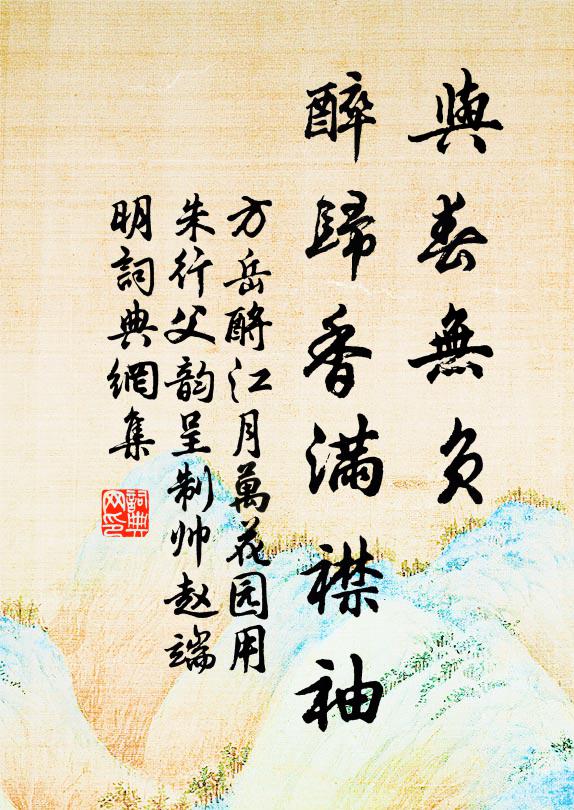 與春無負
醉歸香满襟袖
方岳酹江月萬花园用
朱行父韵呈制帅赵端
明詞典網集
詞典
网印